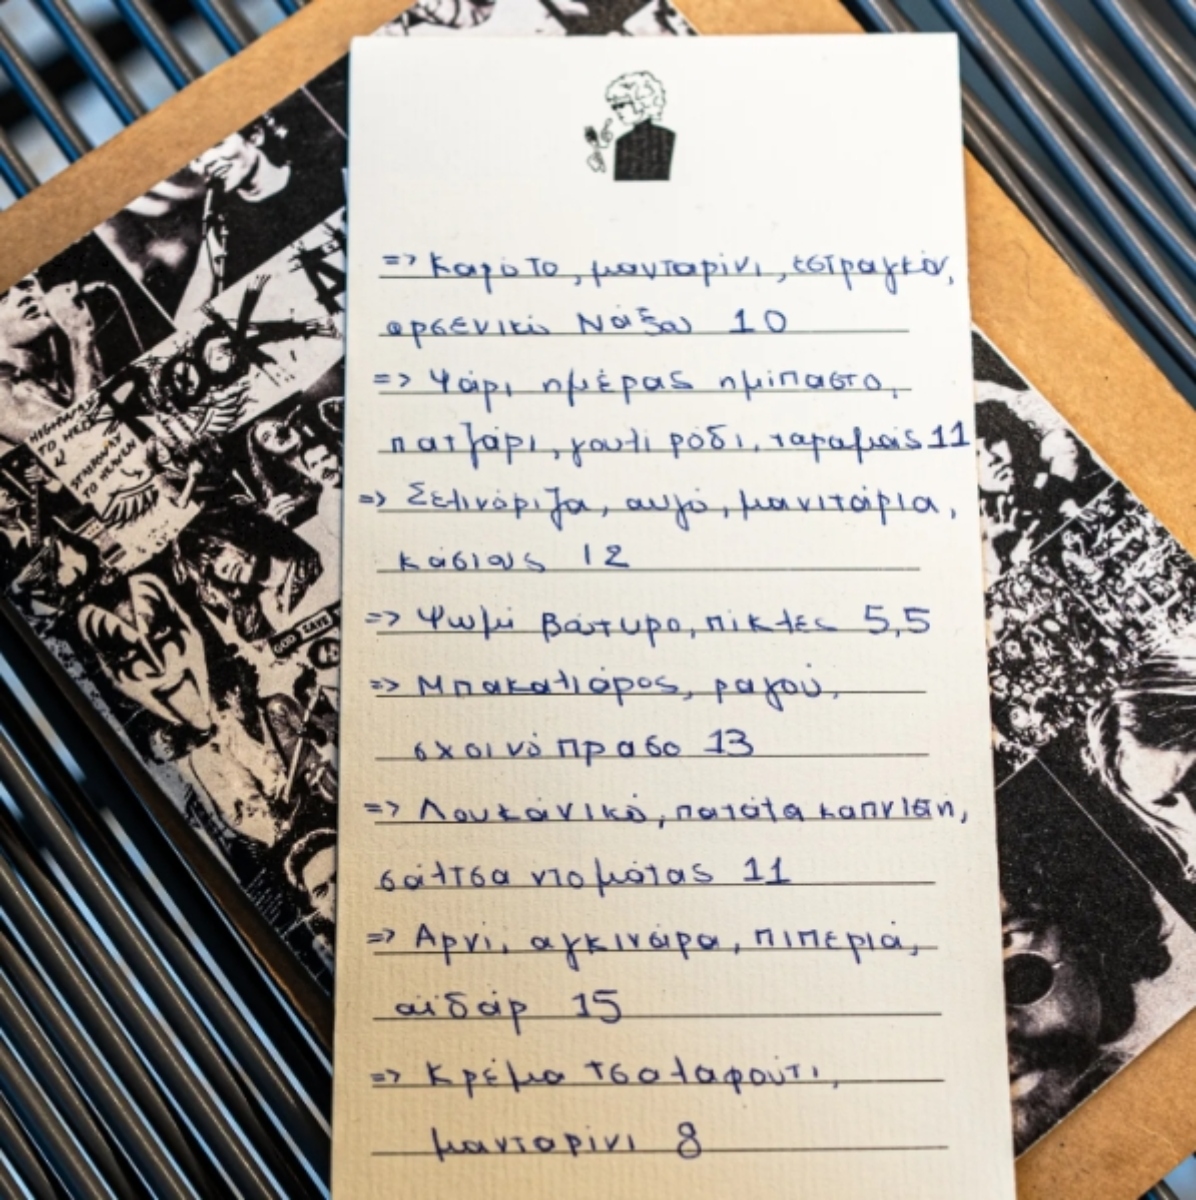 => Καρότο, μανταρίνι, εστραγκόν,
αρσενικό Νάξου 10
=> Ψάρι ημέρας ημίπαστο,
πατζάρι, γουτί ρόδι, ταραμάς 11
=> Σελινόριζα, αυγό, μανιτάρια,
κάσιους 12
=> Ψωμί βούτυρο, πίκλες 5,5
=> Μπακαλιάρος, ραγού,
σχοινόπρασο 13
=> Λουκάνικο, πατάτα καπνιστή,
σάλτσα ντομάτας 11
=> Αρνί, αγκινάρα, πιπεριά,
αϊδάρ 15
=> Κρέμα τσαλαφούτι,
μανταρίνι 8
ROCK
HIGHWAY
TO HELL
STAIRWAY
TO HEAVEN
GOD SAVE